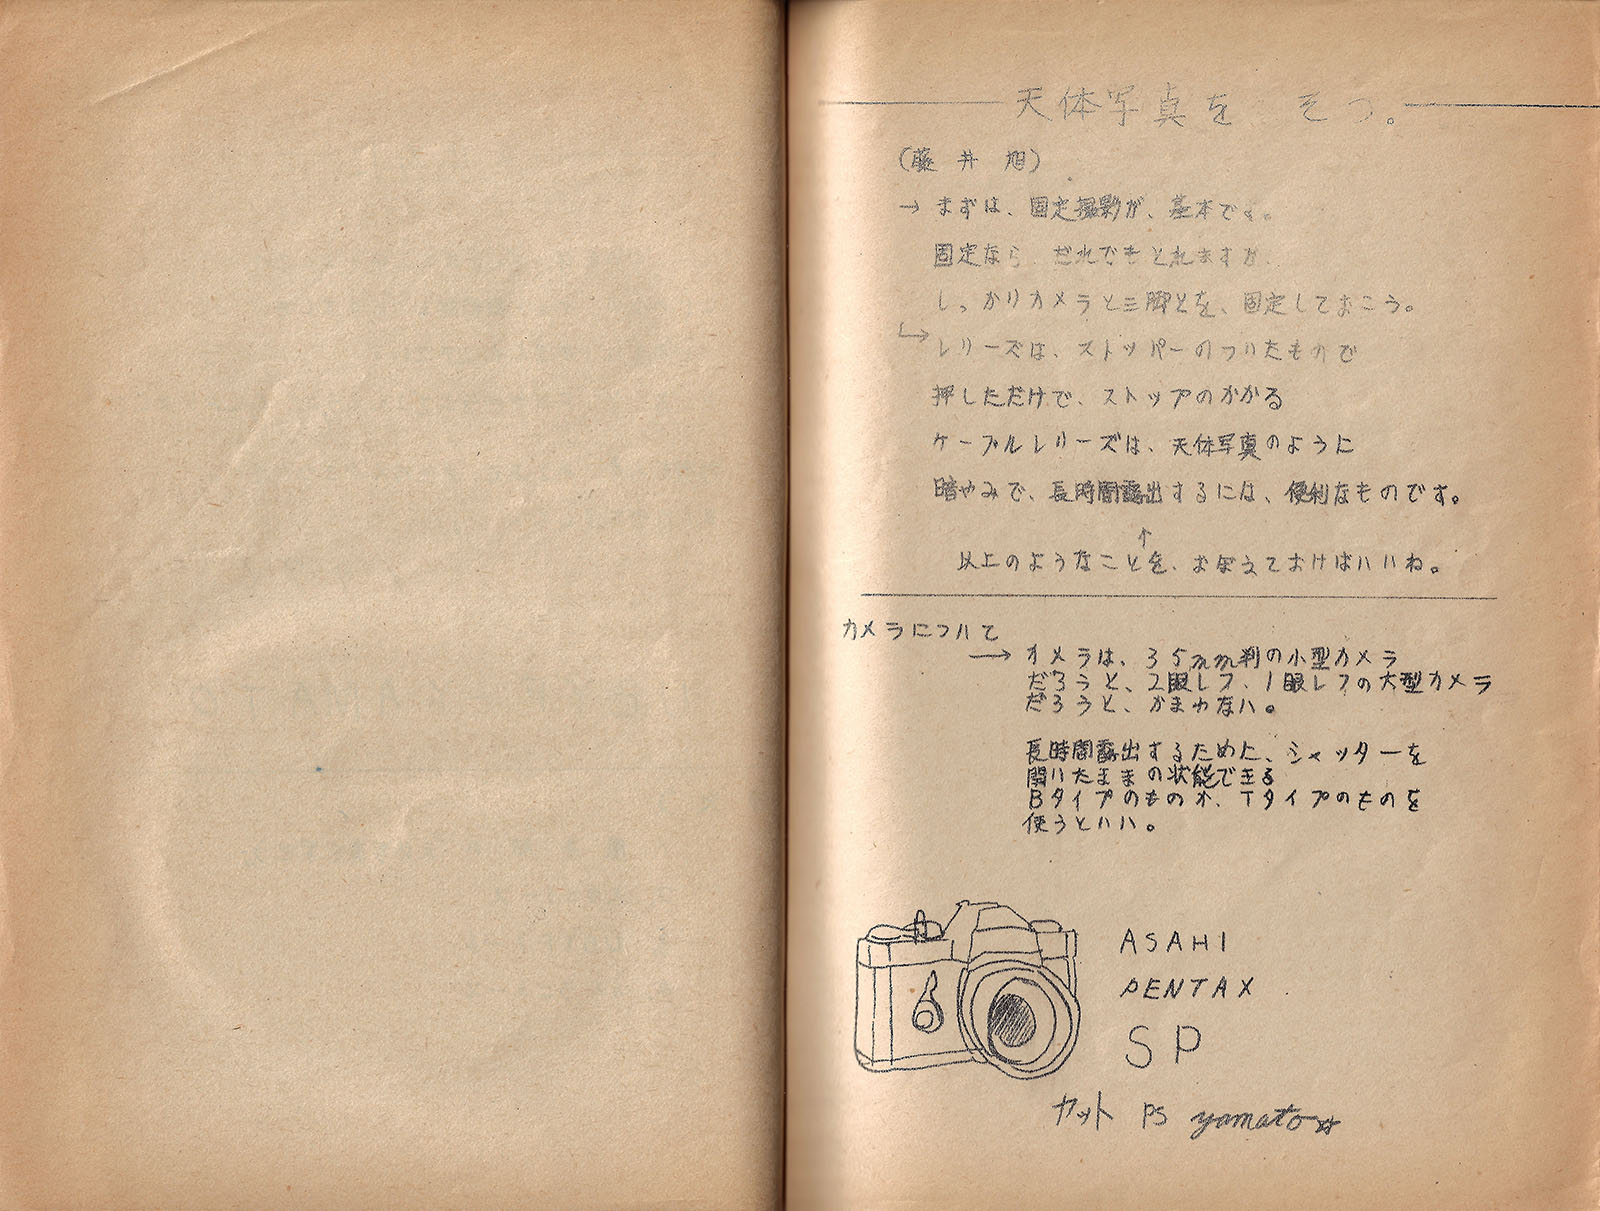 天体写真を そつ。
(藤井旭)
→ まずは、固定撮影が、基本です。
固定なら だれでもとれますが
しっかりカメラと三脚とを、固定しておこう。
レリーズは、ストッパーのついたもので
押しただけで、ストップのかかる
ケーブルレリーズは、天体写真のように
暗やみで、長時間露出するには、便利なものです。
↑
以上のようなことを、おぼえておけばいいね。
カメラについて
→ カメラは、35mm判の小型カメラ
だろうと、2眼レフ、1眼レフの大型カメラ
だろうと、かまわない。
長時間露出するために、シャッターを
開いたままの状態できる
Bタイプのものか、Tタイプのものを
使うといい。
ASAHI
PENTAX
SP
カット PS yamato☆